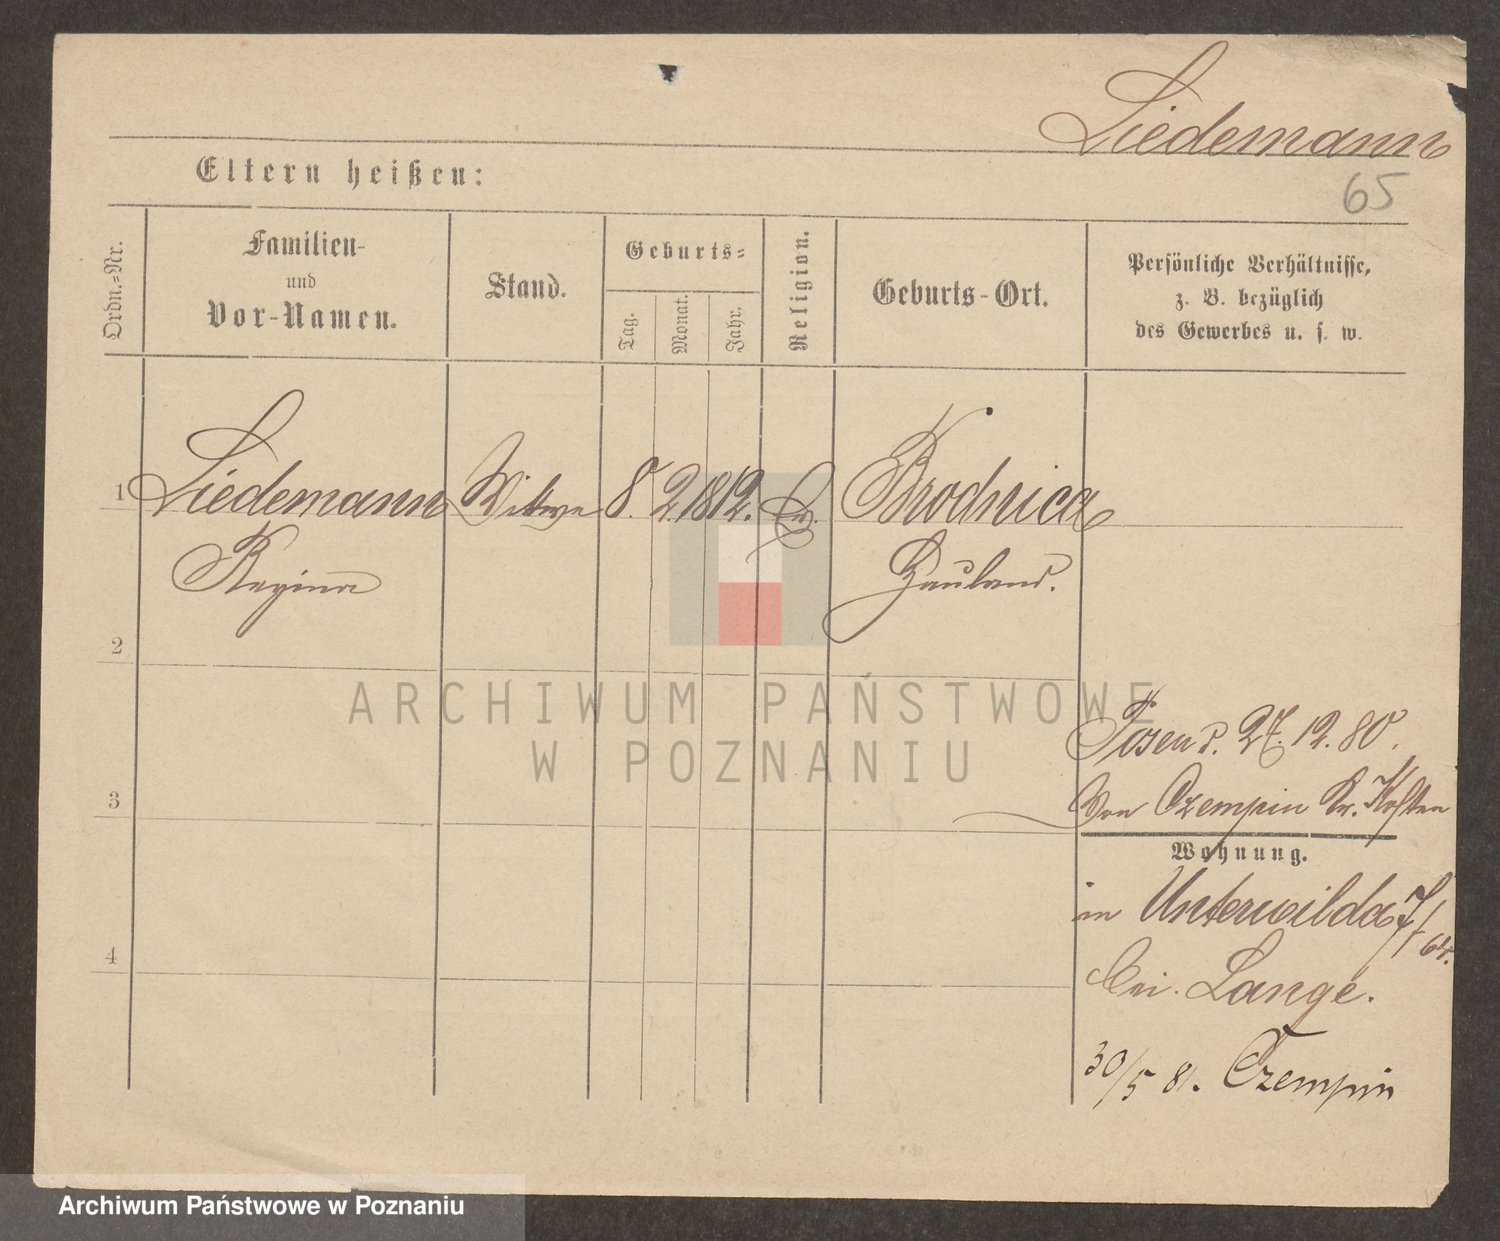 Liedemann
65
Eltern heißen:
Ordn.-Nr.
Familien-
und
Vor-Namen.
Stand.
Geburts-
Tag.
Monat.
Jahr.
Religion.
Geburts-Ort.
Persönliche Verhältnisse,
z. B. bezüglich
des Gewerbes u. s. w.
1 Liedemann Witwe 8. 2. 1812. Ev. Brodnica
Regina Hauland.
2
ARCHIWUM PAŃSTWOWE
W POZNANIU
Posen d. 27. 12. 80.
3 Von Czempin Kr. Kosten
Wohnung.
in Unterwilda 7/64.
4
bei Lange.
30/5 81. Czempin
Archiwum Państwowe w Poznaniu